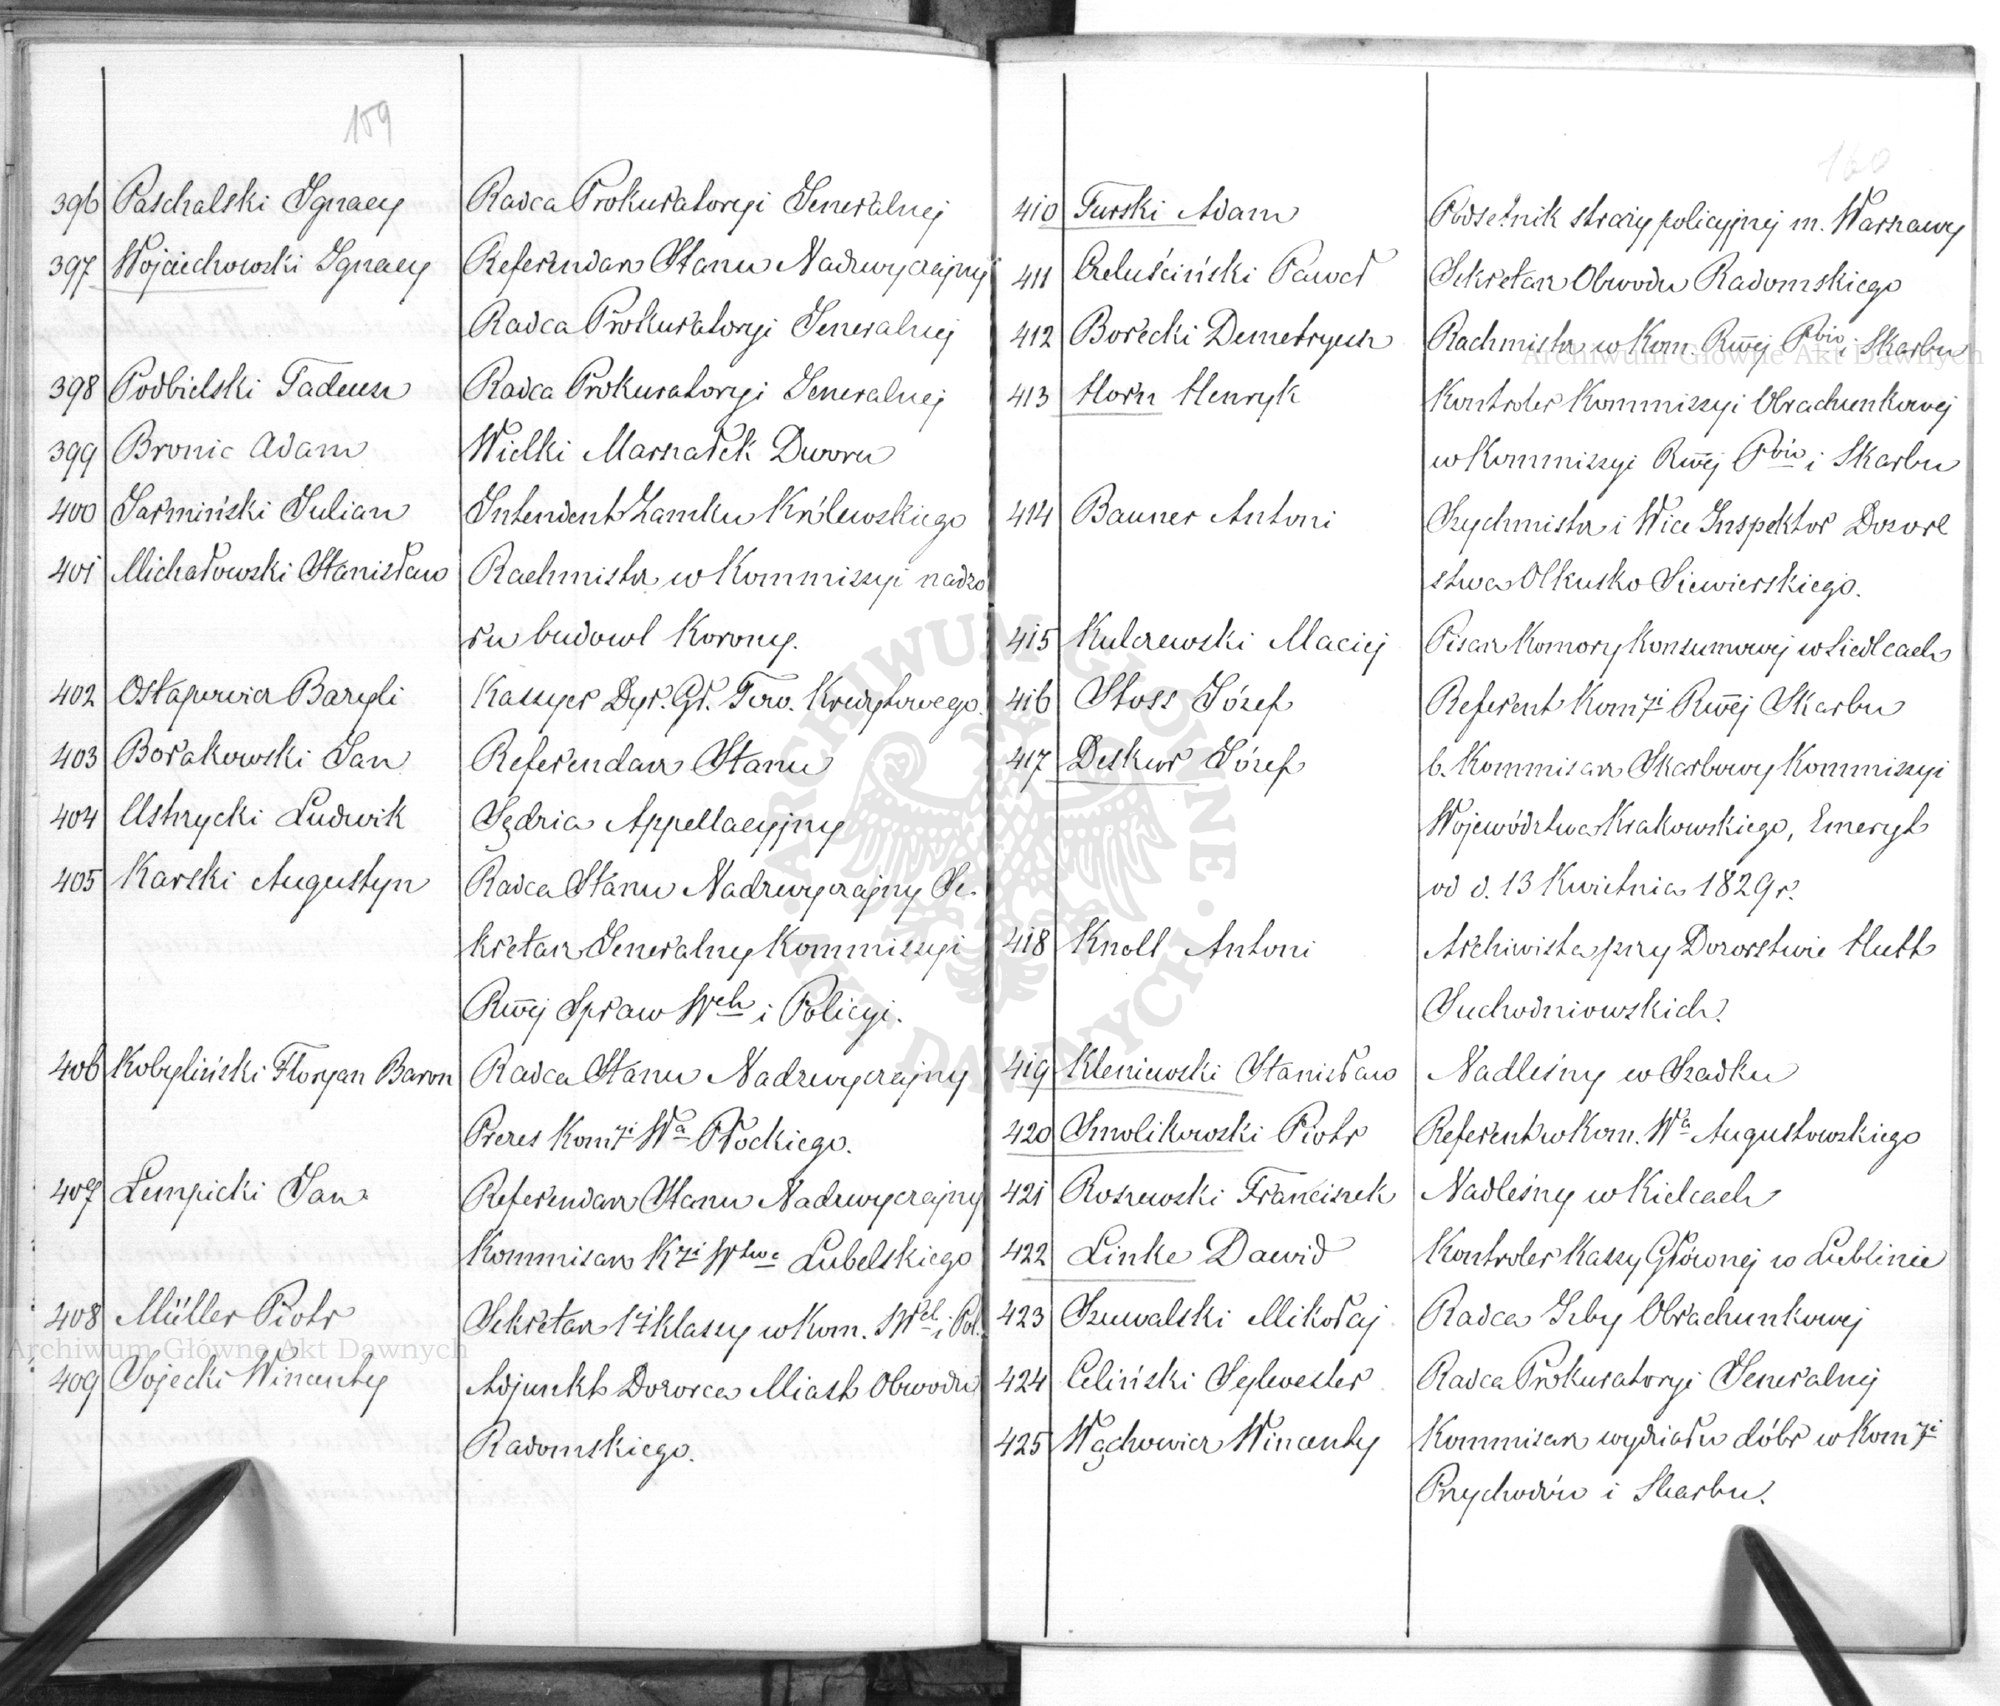 159
396 Paschalski Ignacy Radca Prokuratoryi Generalnej
397 Wojciechowski Ignacy Referendarz Stanu Nadzwyczajny
Radca Prokuratoryi Generalnej
398 Podbielski Tadeusz Radca Prokuratoryi Generalnej
399 Bronic Adam Wielki Marszałek Dworu
400 Jarmiński Julian Intendent Zamku Królewskiego
401 Michałowski Stanisław Rachmistrz w Kommissyi nadzo
ru budowl Korony.
402 Ostapowicz Bazyli Kassyer Dyr. Gł. Tow. Kredytowego.
403 Borakowski Jan Referendarz Stanu
404 Ustrzycki Ludwik Sędzia Appellacyjny
405 Karski Augustyn Radca Stanu Nadzwyczajny Se-
kretarz Generalny Kommissyi
Rwej Spraw Wch i Policyi.
406 Kobyliński Floryan Baron Radca Stanu Nadzwyczajny
Prezes Kom7i Wa Płockiego.
407 Łempicki Jan Referendarz Stanu Nadzwyczajny
Kommisarz K7i Wtwa Lubelskiego
408 Müller Piotr Sekretarz 1ej klassy w Kom. S. Wch i Pol.
409 Sojecki Wincenty Adjunkt Dozorca Miast Obwodu
Radomskiego.
160
410 Turski Adam Podsetnik straży policyjnej m. Warszawy
411 Czeluściński Paweł Sekretarz Obwodu Radomskiego
412 Borecki Demetryusz Rachmistrz w Kom. Rwej Pów i Skarbu
413 Horn Henryk Kontroler Kommissyi Obrachunkowej
w Kommissyi Rwej Pów i Skarbu
414 Bauner Antoni Szychmistrz i Wice Inspektor Dozorc
stwa Olkusko Siewierskiego.
415 Kulczewski Maciej Pisarz Komory Konsumowej w Siedlcach
416 Stoss Józef Referent Kom7i Rwej Skarbu
417 Deskur Józef b. Kommisarz Skarbowy Kommissyi
Województwa Krakowskiego, Emeryt
od d. 13 Kwietnia 1829 r.
418 Knoll Antoni Archiwista przy Dozorstwie Hutt
Suchedniowskich.
419 Kleniewski Stanisław Nadleśny w Szadku
420 Smolikowski Piotr Referent w Kom. Wa Augustowskiego
421 Roszewski Franciszek Nadleśny w Kielcach
422 Linke Dawid Kontroler Kassy Głównej w Lublinie
423 Szuwalski Mikołaj Radca Izby Obrachunkowej
424 Celiński Sylwester Radca Prokuratoryi Generalnej
425 Wąchowicz Wincenty Kommisarz wydziału dóbr w Kom7i
Przychodów i Skarbu.
Archiwum Główne Akt Dawnych
Archiwum Główne Akt Dawnych
ARCHIWUM GŁÓWNE AKT DAWNYCH